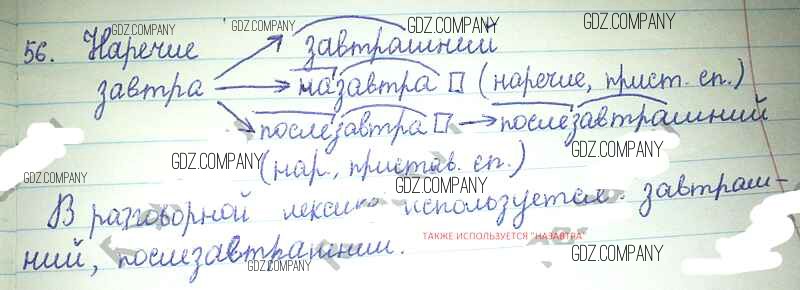 56. Наречие завтрашний
завтра назавтра (наречие, прист. сп.)
послезавтра послезавтрашний
(нар., пристав. сп.)
В разговорной лексике используется завтраш-
ний, послезавтрашний.
ТАКЖЕ ИСПОЛЬЗУЕТСЯ "НАЗАВТРА"
GDZ.COMPANY
GDZ.COMPANY
GDZ.COMPANY
GDZ.COMPANY
GDZ.COMPANY
GDZ.COMPANY
GDZ.COMPANY
GDZ.COMPANY
GDZ.COMPANY
GDZ.COMPANY
GDZ.COMPANY
GDZ.COMPANY